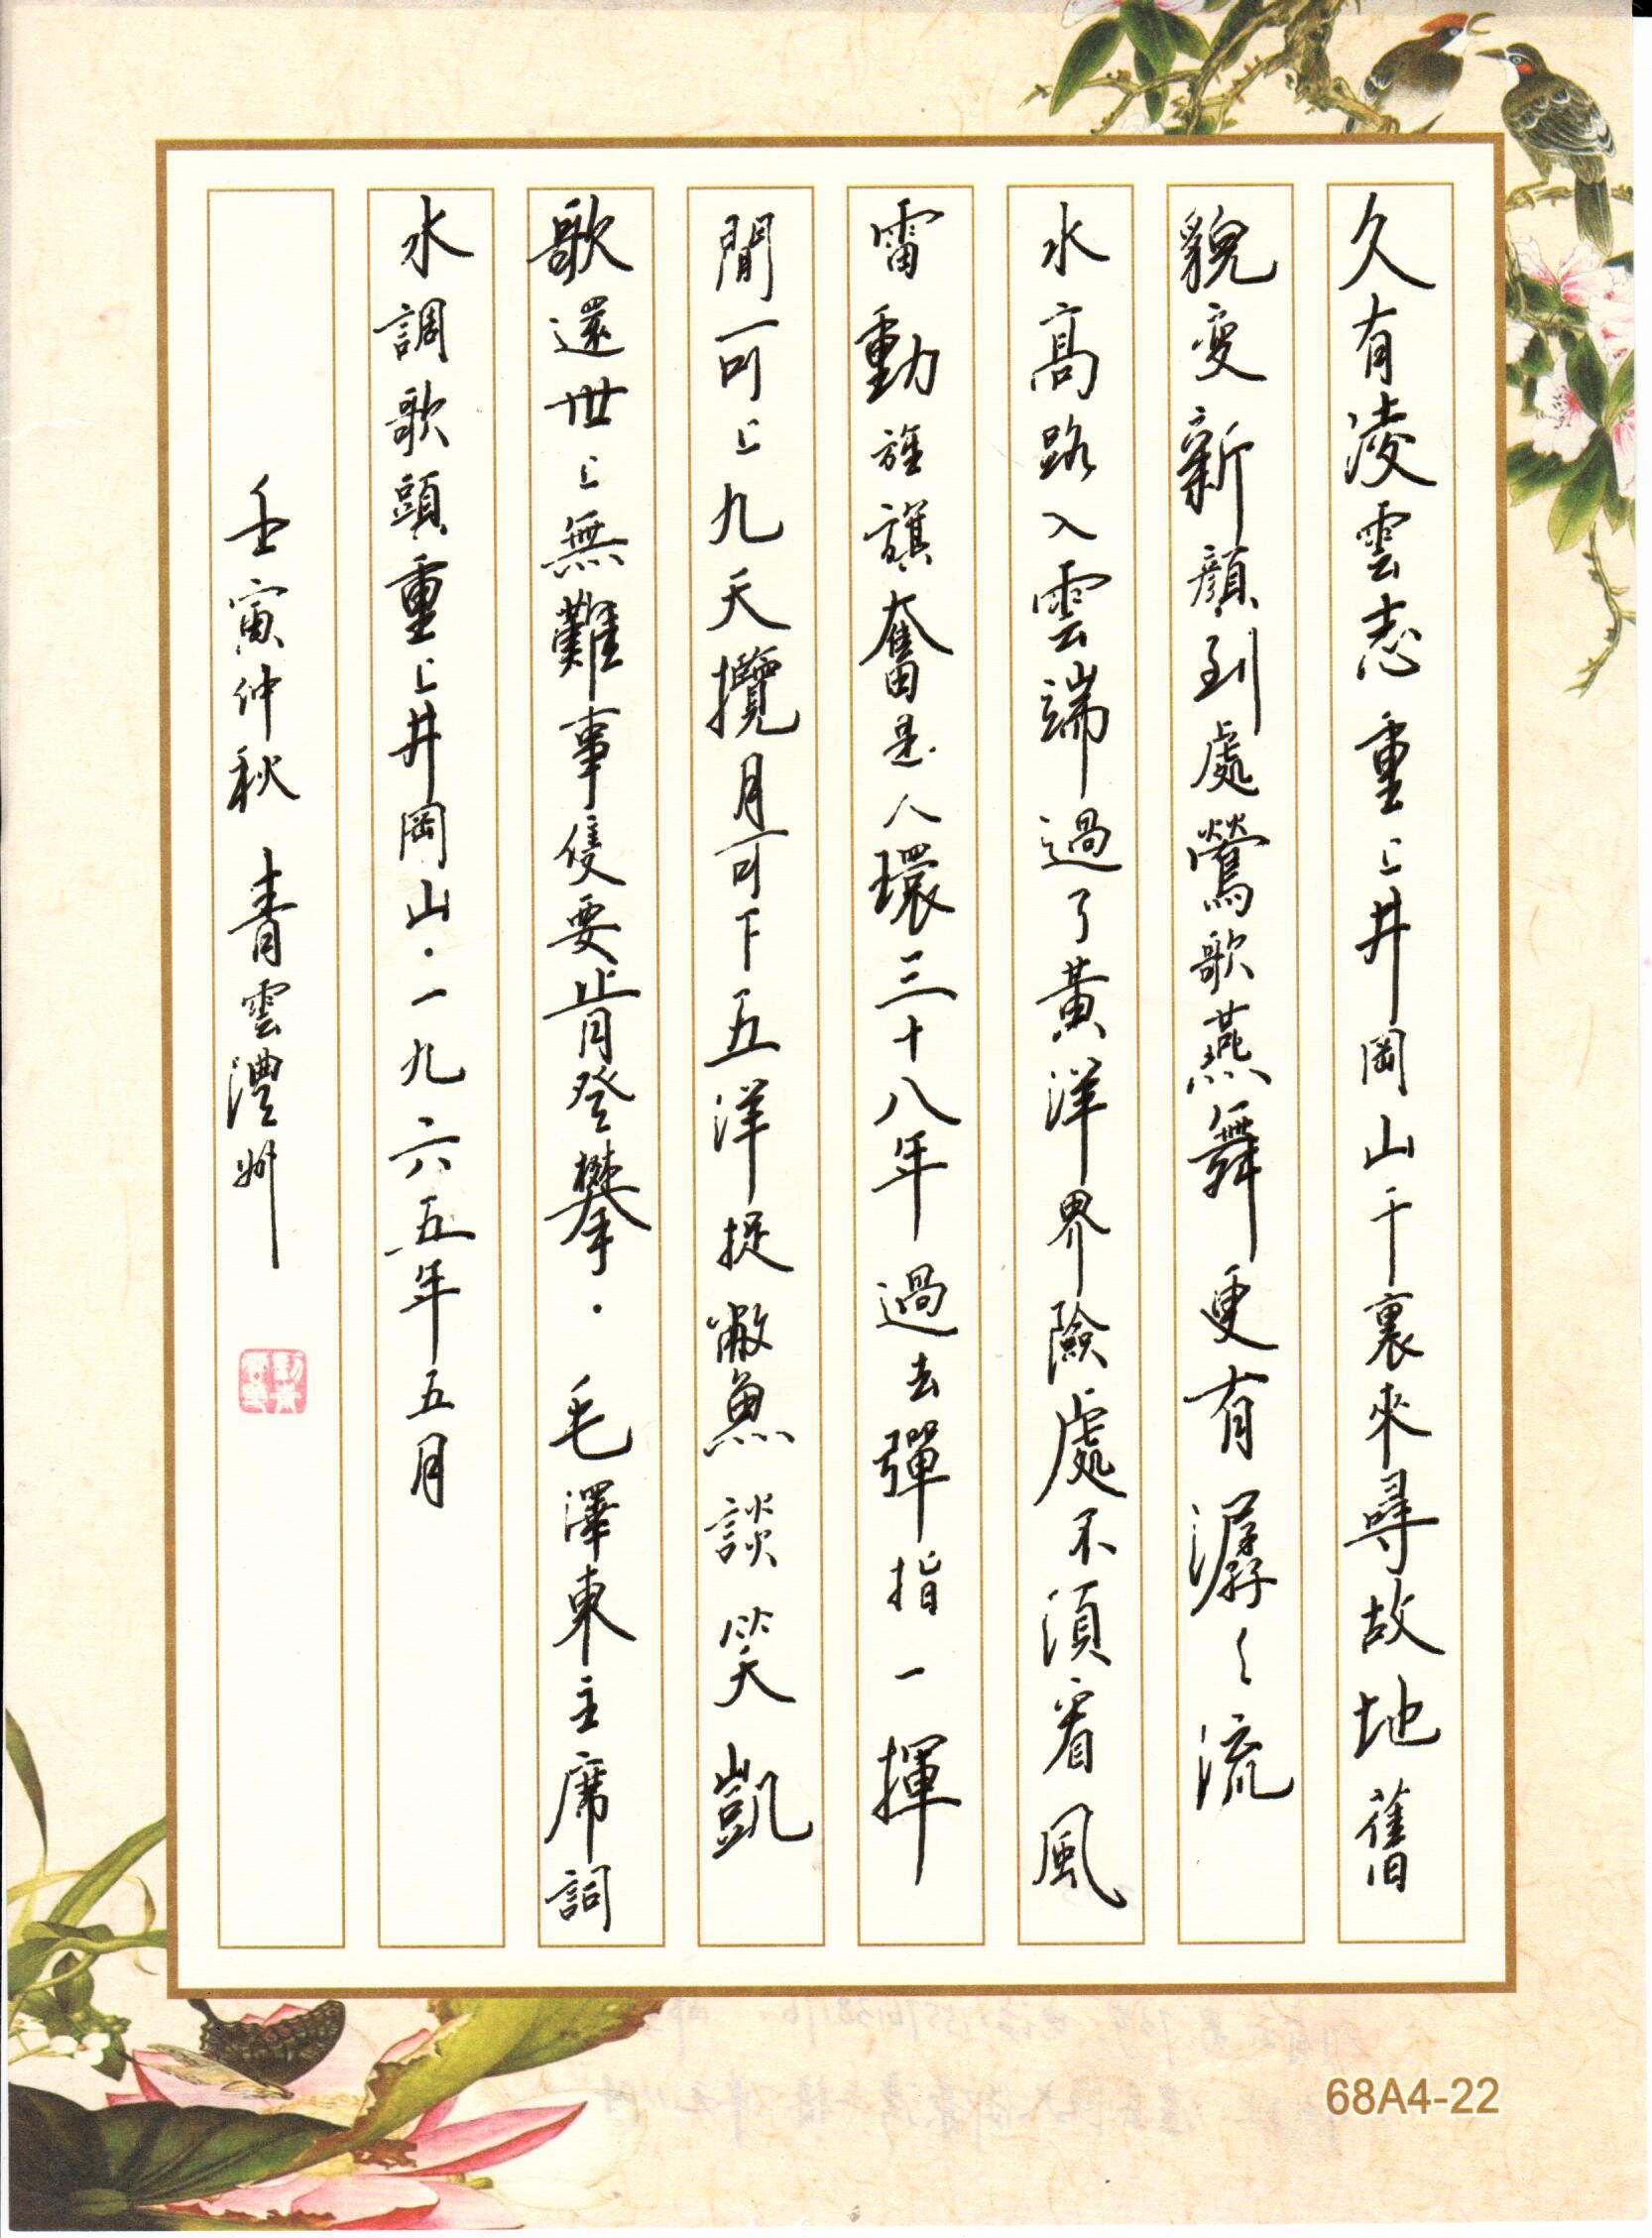 久有淩雲志重上井岡山千裏來尋故地舊
貌变新顏到處鶯歌燕舞更有潺々流
水高路入雲端過了黃洋界險處不須看風
雷動旌旗奮是人環三十八年過去彈指一揮
間可上九天攬月可下五洋捉鱉談笑凱
歌還世上無難事隻要肯登攀·毛澤東主席詞
水調歌頭重上井岡山·一九六五年五月
壬寅仲秋 青雲澧州
68A4-22